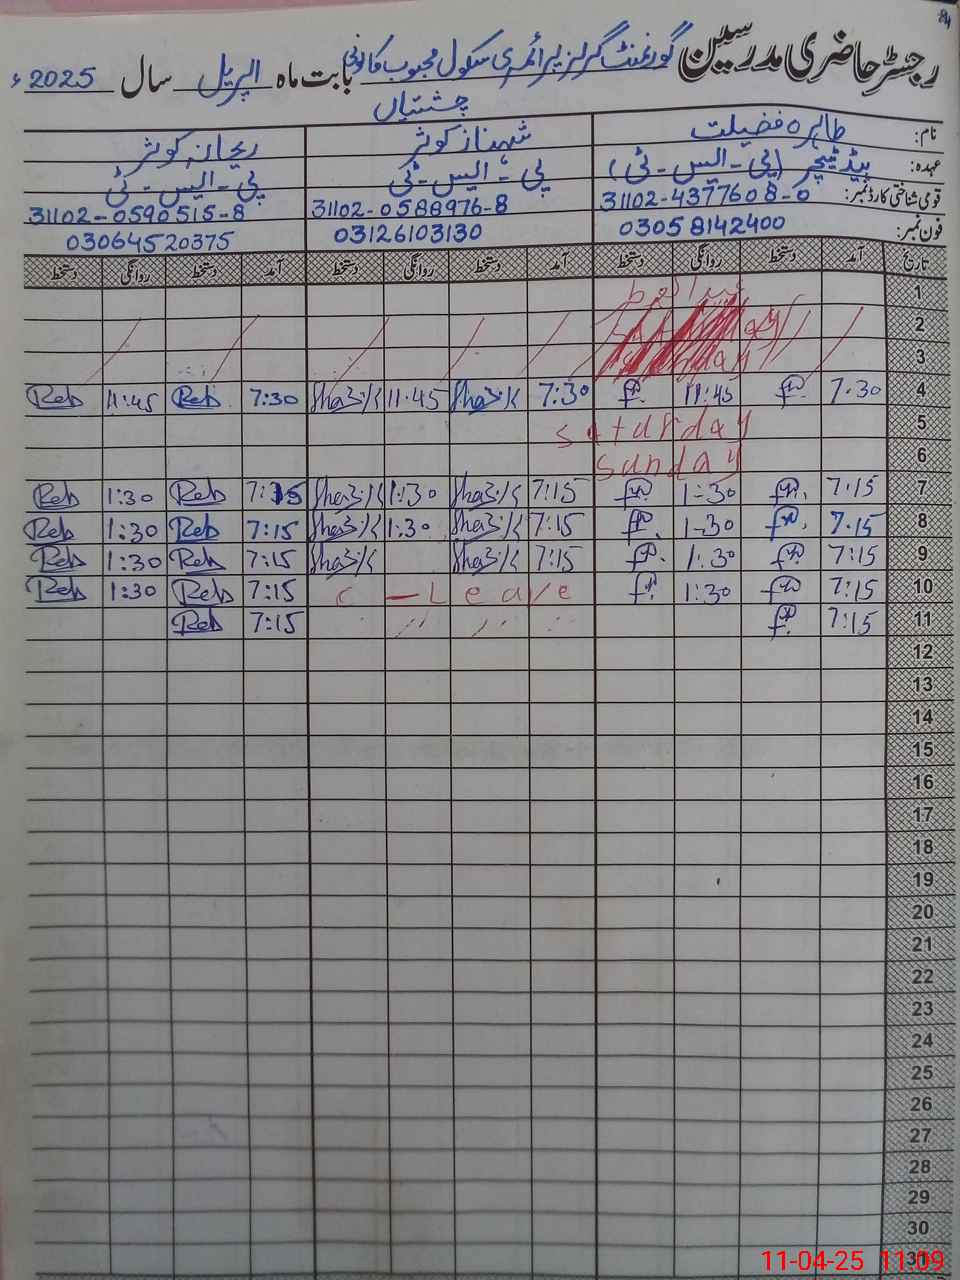 84
رجسٹر حاضری مدرسین گورنمنٹ گرلز پرائمری سکول محبوب کالونی بابت ماہ اپریل سال 2025ء
چشتیاں
نام: طاہرہ فضیلت شہناز کوثر ریحانہ کوثر
عہدہ: ہیڈ ٹیچر (پی-ایس-ٹی) پی-ایس-ٹی پی-ایس-ٹی
قومی شناختی کارڈ نمبر: 31102-4377608-0 31102-0588976-8 31102-0590515-8
فون نمبر: 03058142400 03126103130 03064520375
تاریخ آمد دستخط روانگی دستخط آمد دستخط روانگی دستخط آمد دستخط روانگی دستخط
1
2
3
4 7:30 11:45 7:30 Shaz.K 11:45 Shaz.K 7:30 Reh 11:45 Reh
5 Saturday
6 Sunday
7 7:15 1:30 7:15 Shaz.K 1:30 Shaz.K 7:15 Reh 1:30 Reh
8 7:15 1-30 7:15 Shaz.K 1:30 Shaz.K 7:15 Reh 1:30 Reh
9 7:15 1:30 7:15 Shaz.K Shaz.K 7:15 Reh 1:30 Reh
10 7:15 1:30 C-Leave 7:15 Reh 1:30 Reh
11 7:15 7:15 Reh
12
13
14
15
16
17
18
19
20
21
22
23
24
25
26
27
28
29
30
31
11-04-25 11:09